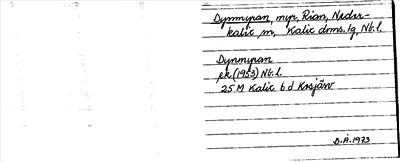 Dynmyran, myr, Rian, Neder-
kalix sn, Kalix doms. lg, Nb. l.
Dynmyran
ek (1953) Nb. l.
25 M Kalix 6 d
D.Å. 1973